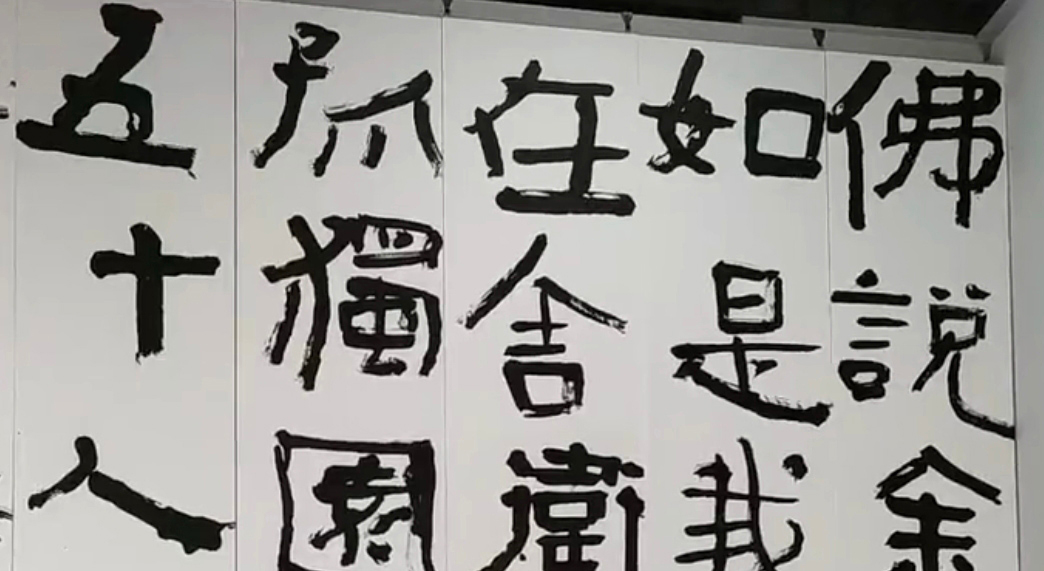 佛說金
如是我
在舍衛
孤獨園
五十人